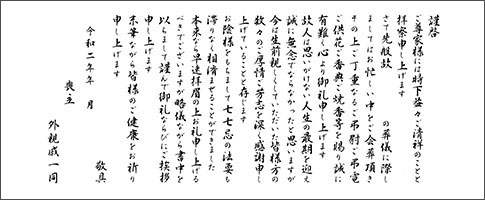 謹啓
ご尊家様には時下益々ご清祥のことと
拝察申し上げます
さて先般故　　　　の葬儀に際し
ましてはお忙しい中をご会葬頂き
その上ご丁重なるご弔慰ご弔電
ご供花ご香典ご焼香等を賜り誠に
有難く心より御礼申し上げます
故人は思いがけない人生の最期を迎え
誠に無念でならなかったと思いますが
今は生前親しくしていただいた皆様方の
数々のご厚情ご芳志を深く感謝申し
上げていることと存じます
お陰様をもちまして七七忌の法要も
滞りなく相済ませることができました
本来なら早速拝眉の上お礼申し上げる
べきでございますが略儀ながら書中を
以ちまして謹んで御礼ならびにご挨拶
申し上げます
末筆ながら皆様のご健康をお祈り
申し上げます
敬具
令和二年　年　月
喪主
外親戚一同